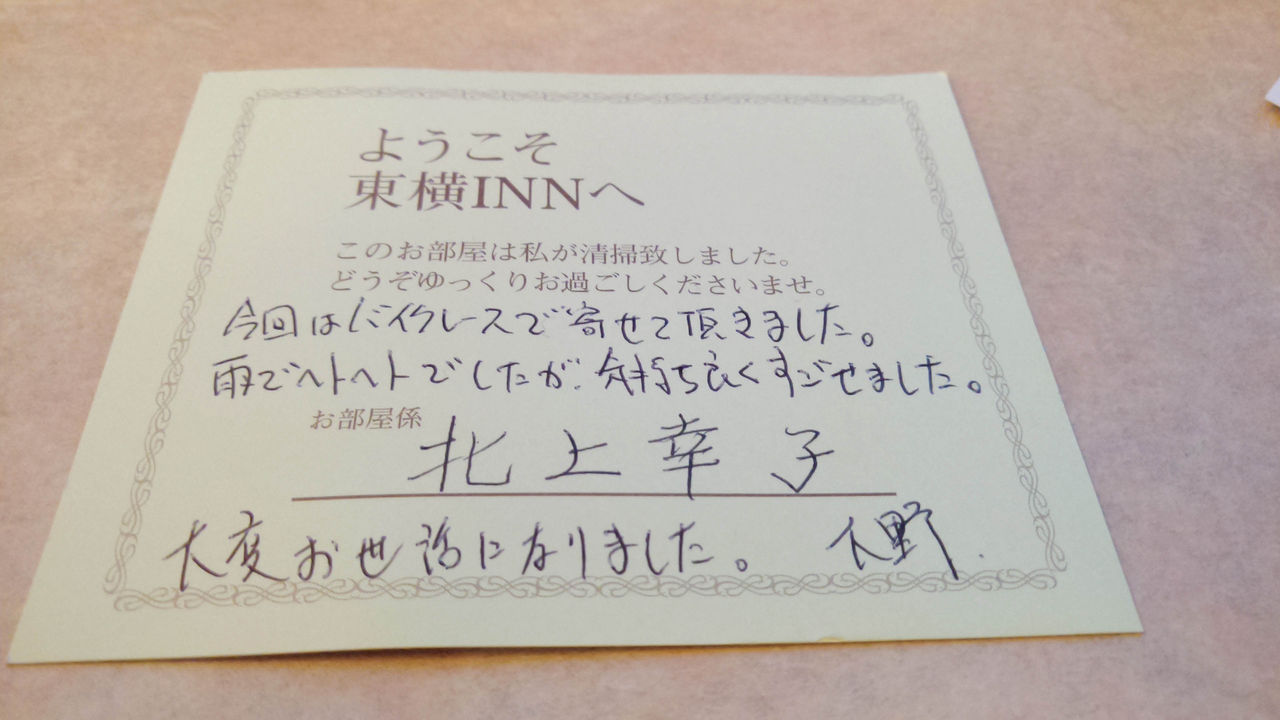 ようこそ
東横INNへ
このお部屋は私が清掃致しました。
どうぞゆっくりお過ごしくださいませ。
今回はバイクレースで寄せて頂きました。
雨でヘトヘトでしたが、気持ち良くすごせました。
お部屋係
北上幸子
大変お世話になりました。